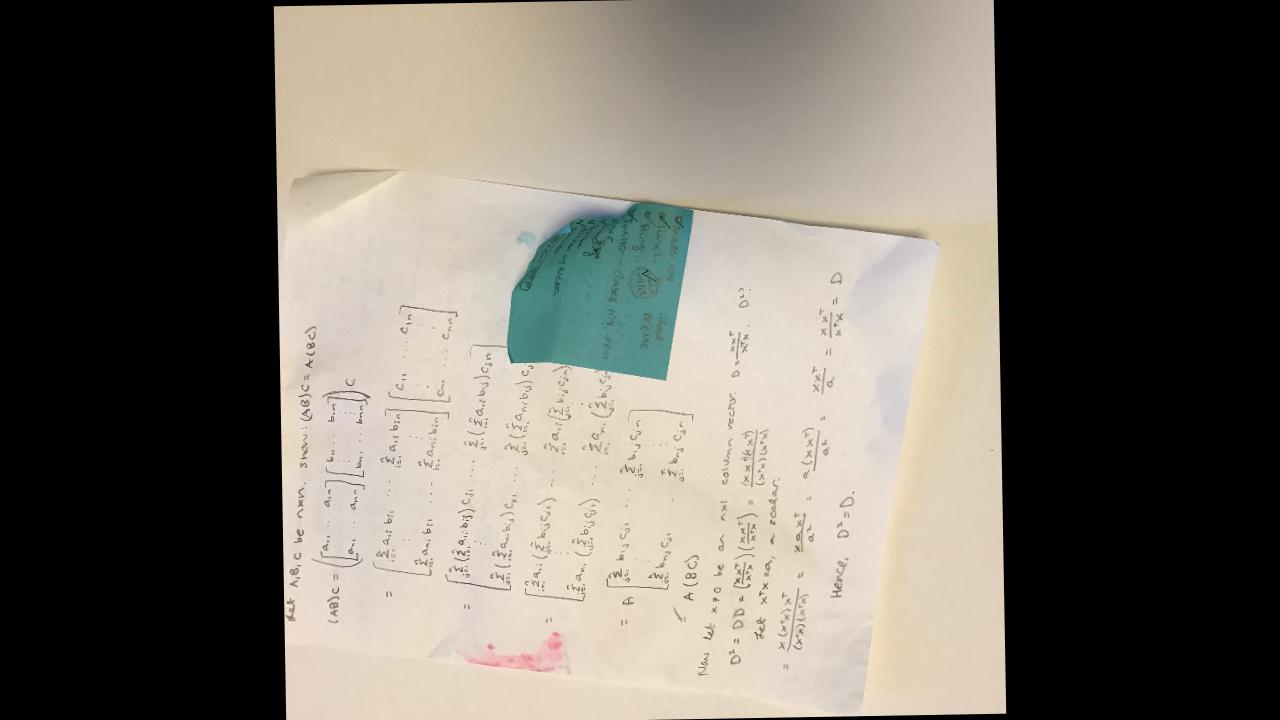 Let A, B, C be n×n. Show: (AB)C = A(BC)
(AB)C = ([a₁₁ ... a₁ₙ ⋮ aₙ₁ ... aₙₙ] [b₁₁ ... b₁ₙ ⋮ bₙ₁ ... bₙₙ]) C
= [Σᵢ₌₁ⁿ a₁ᵢbᵢ₁ ... Σᵢ₌₁ⁿ a₁ᵢbᵢₙ ⋮ Σᵢ₌₁ⁿ aₙᵢbᵢ₁ ... Σᵢ₌₁ⁿ aₙᵢbᵢₙ] [c₁₁ ... c₁ₙ ⋮ cₙ₁ ... cₙₙ]
= [Σⱼ₌₁ⁿ (Σᵢ₌₁ⁿ a₁ᵢbᵢⱼ) cⱼ₁ ... Σⱼ₌₁ⁿ (Σᵢ₌₁ⁿ a₁ᵢbᵢⱼ) cⱼₙ
Σⱼ₌₁ⁿ (Σᵢ₌₁ⁿ aₙᵢbᵢⱼ) cⱼ₁ ... Σⱼ₌₁ⁿ (Σᵢ₌₁ⁿ aₙᵢbᵢⱼ) cⱼ
= [Σᵢ₌₁ⁿ a₁ᵢ (Σⱼ₌₁ⁿ bᵢⱼcⱼ₁) ... Σᵢ₌₁ⁿ a₁ᵢ (Σⱼ₌₁ⁿ bᵢⱼcⱼₙ)
Σᵢ₌₁ⁿ aₙᵢ (Σⱼ₌₁ⁿ bᵢⱼcⱼ₁) ... Σᵢ₌₁ⁿ aₙᵢ (Σⱼ₌₁ⁿ bᵢⱼcⱼₙ
= A [Σⱼ₌₁ⁿ b₁ⱼcⱼ₁ ... Σⱼ₌₁ⁿ b₁ⱼcⱼₙ ⋮ Σⱼ₌₁ⁿ bₙⱼcⱼ₁ ... Σⱼ₌₁ⁿ bₙⱼcⱼₙ]
= A(BC)
Now let x≠0 be an n×1 column vector. D = xxᵀ/xᵀx. D²?
D² = DD = (xxᵀ/xᵀx)(xxᵀ/xᵀx) = (xxᵀ)(xxᵀ)/(xᵀx)(xᵀx)
Let xᵀx = a, a scalar.
= x(xᵀx)xᵀ/(xᵀx)(xᵀx) = xaxᵀ/a² = a(xxᵀ)/a² = xxᵀ/a = xxᵀ/xᵀx = D
Hence, D² = D.